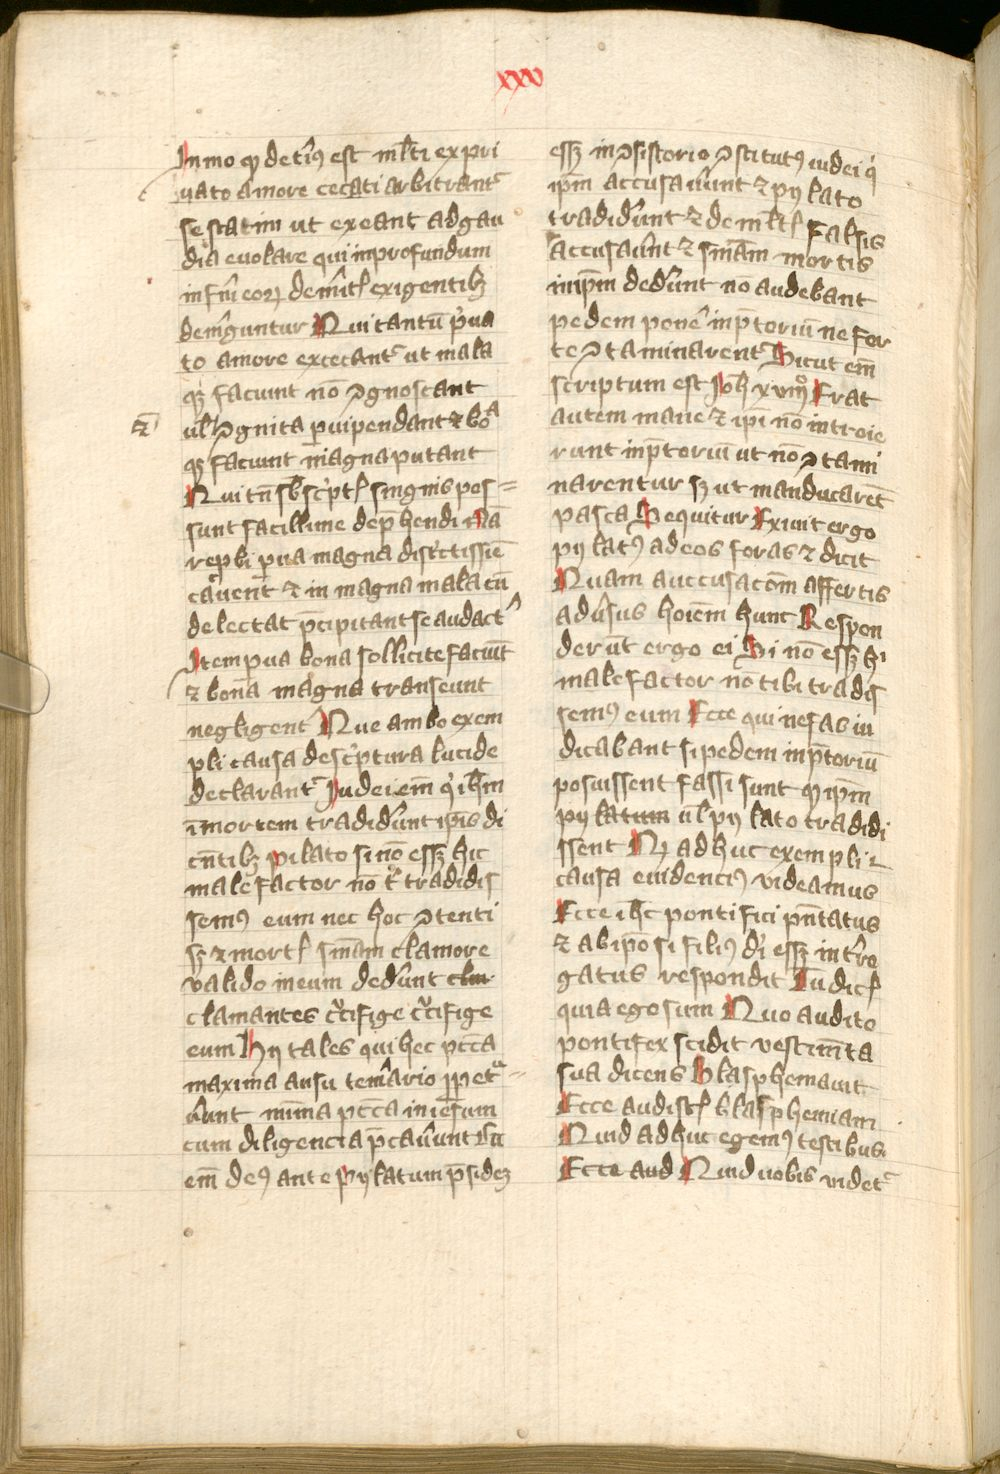 xxx
Inmo qͥ detiꝰ est ml̄ti ex pri
uato amore cecati arbitrantᷣ
se statim ut exeant ad gau
dia euolare qui in profundum
infni eoꝝ demit exigentibꝫ
dem̄guntur Qui tantū pͥua
to amore excecantᷣ ut mala
qꝫ faciunt nō ꝯgnoscant
ul̄ ꝯgnita ꝑuipendant ⁊ boᵃ
qꝫ faciunt magna putant
Qui tn̄ sb̄ scͥpt singnis pos=
sunt facillime dep̄hendi Nā
repb̄i ꝑua magna disͨctissiē
cauent ⁊ in magna mala cū
delectat p̄cipitant se audact
Item ꝑua bona sollicite faciūt
⁊ bona magna transeunt
negligent Que ambo exem
pli causa de scͥptura lucide
declarantᷣ Iudei em̄ qͥ ih̄m
ī mortem tradidunt ipīs di
cn̄tibꝫ pilato si nō essꝫ hic
malefactor nō tͥ tradidis
semꝰ eum nec hoc ꝯtenti
sꝫ ⁊ mort sn̄iam clamore
valido in eum dedunt clm
clamantes cͨifige cͨifige
eum Hij tales qui hec pcc̄a
maxima ausu temario ꝑpetᵃ=
uunt minima pcc̄a in iesum
cum diligencia p̄cauunt Cū
em̄ deꝰ ante pylatum p̄sideꝫ
essꝫ in ꝯsistorio ꝯstitutꝰ iudei qͥ
ipm̄ accusauunt ⁊ pylato
tradidunt ⁊ de ml̄t falsis
accusaunt ⁊ sn̄iam mortis
in ipm̄ dedunt nō audebant
pedem pone in p̄toriū ne for
te ꝯtaminarentᷣ Sicut em̄
scriptum est Joh xviiiͦ Erat
autem mane ⁊ ipi nō introie
runt in p̄toriū ut nō ꝯtami
narentur sꝫ ut manducarēt
pasca Sequitur Exiuit ergo
pylatꝰ ad eos foras ⁊ dicit
Quam auccusacōm affertis
aduͥsus hoiem hunc Respon
derūt ergo ei Si nō essꝫ hͥ
malefactor nō tibi tradis
semꝰ eum Ecce qui nefas iu
dicabant si pedem in p̄toriū
posuissent fassi sunt qͥ ipm̄
pylatum ul̄ pylato tradidi
ssent Qͥ adhuc exempli
causa euidenciꝰ videamus
Ecce ih̄c pontifici pn̄tatus
⁊ ab ipo si filiꝰ di essꝫ intre
gatus respondit Tu dic
quia ego sum Quo audito
pontifex scidit vestimn̄ta
sua dicens Blasphemauit
Ecce audist blasphemiam
Quid adhuc egemꝰ testibus
Ecce aud Quid uobis videtᷣ